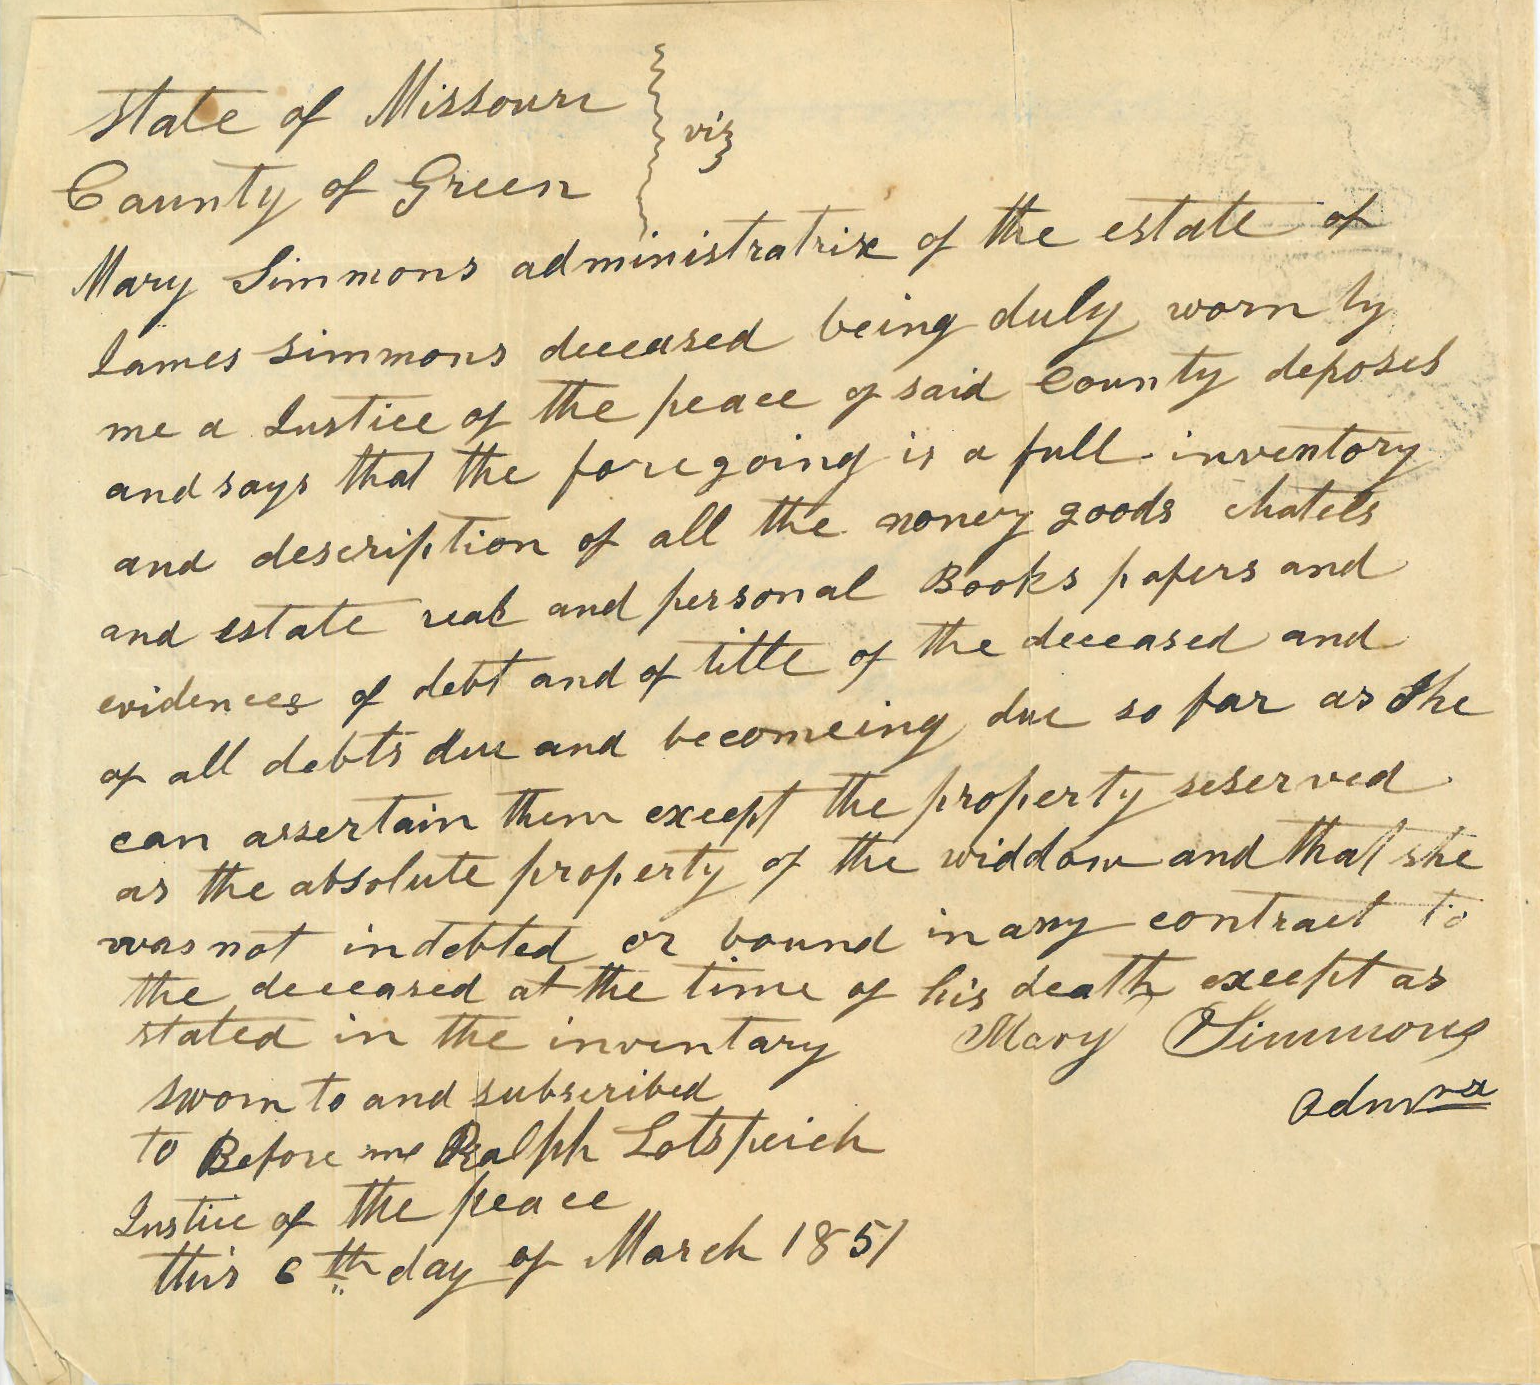 State of Missouri
viz
County of Green
Mary Simmons administratrix of the estate of
James Simmons deceased being duly sworn by
me a Justice of the peace of said County deposes
and says that the foregoing is a full inventory
and description of all the money goods chatels
and estate real and personal Books papers and
evidences of debt and of title of the deceased and
of all debts due and becomeing due so far as She
can assertain them except the property reserved
as the absolute property of the widdow and that she
was not indebted or bound in any contract to
the deceased at the time of his death except as
stated in the inventary Mary Simmons
Admrx
sworn to and subscribed
to Before me Ralph Lotspeich
Justice of the peace
this 6th day of March 1851